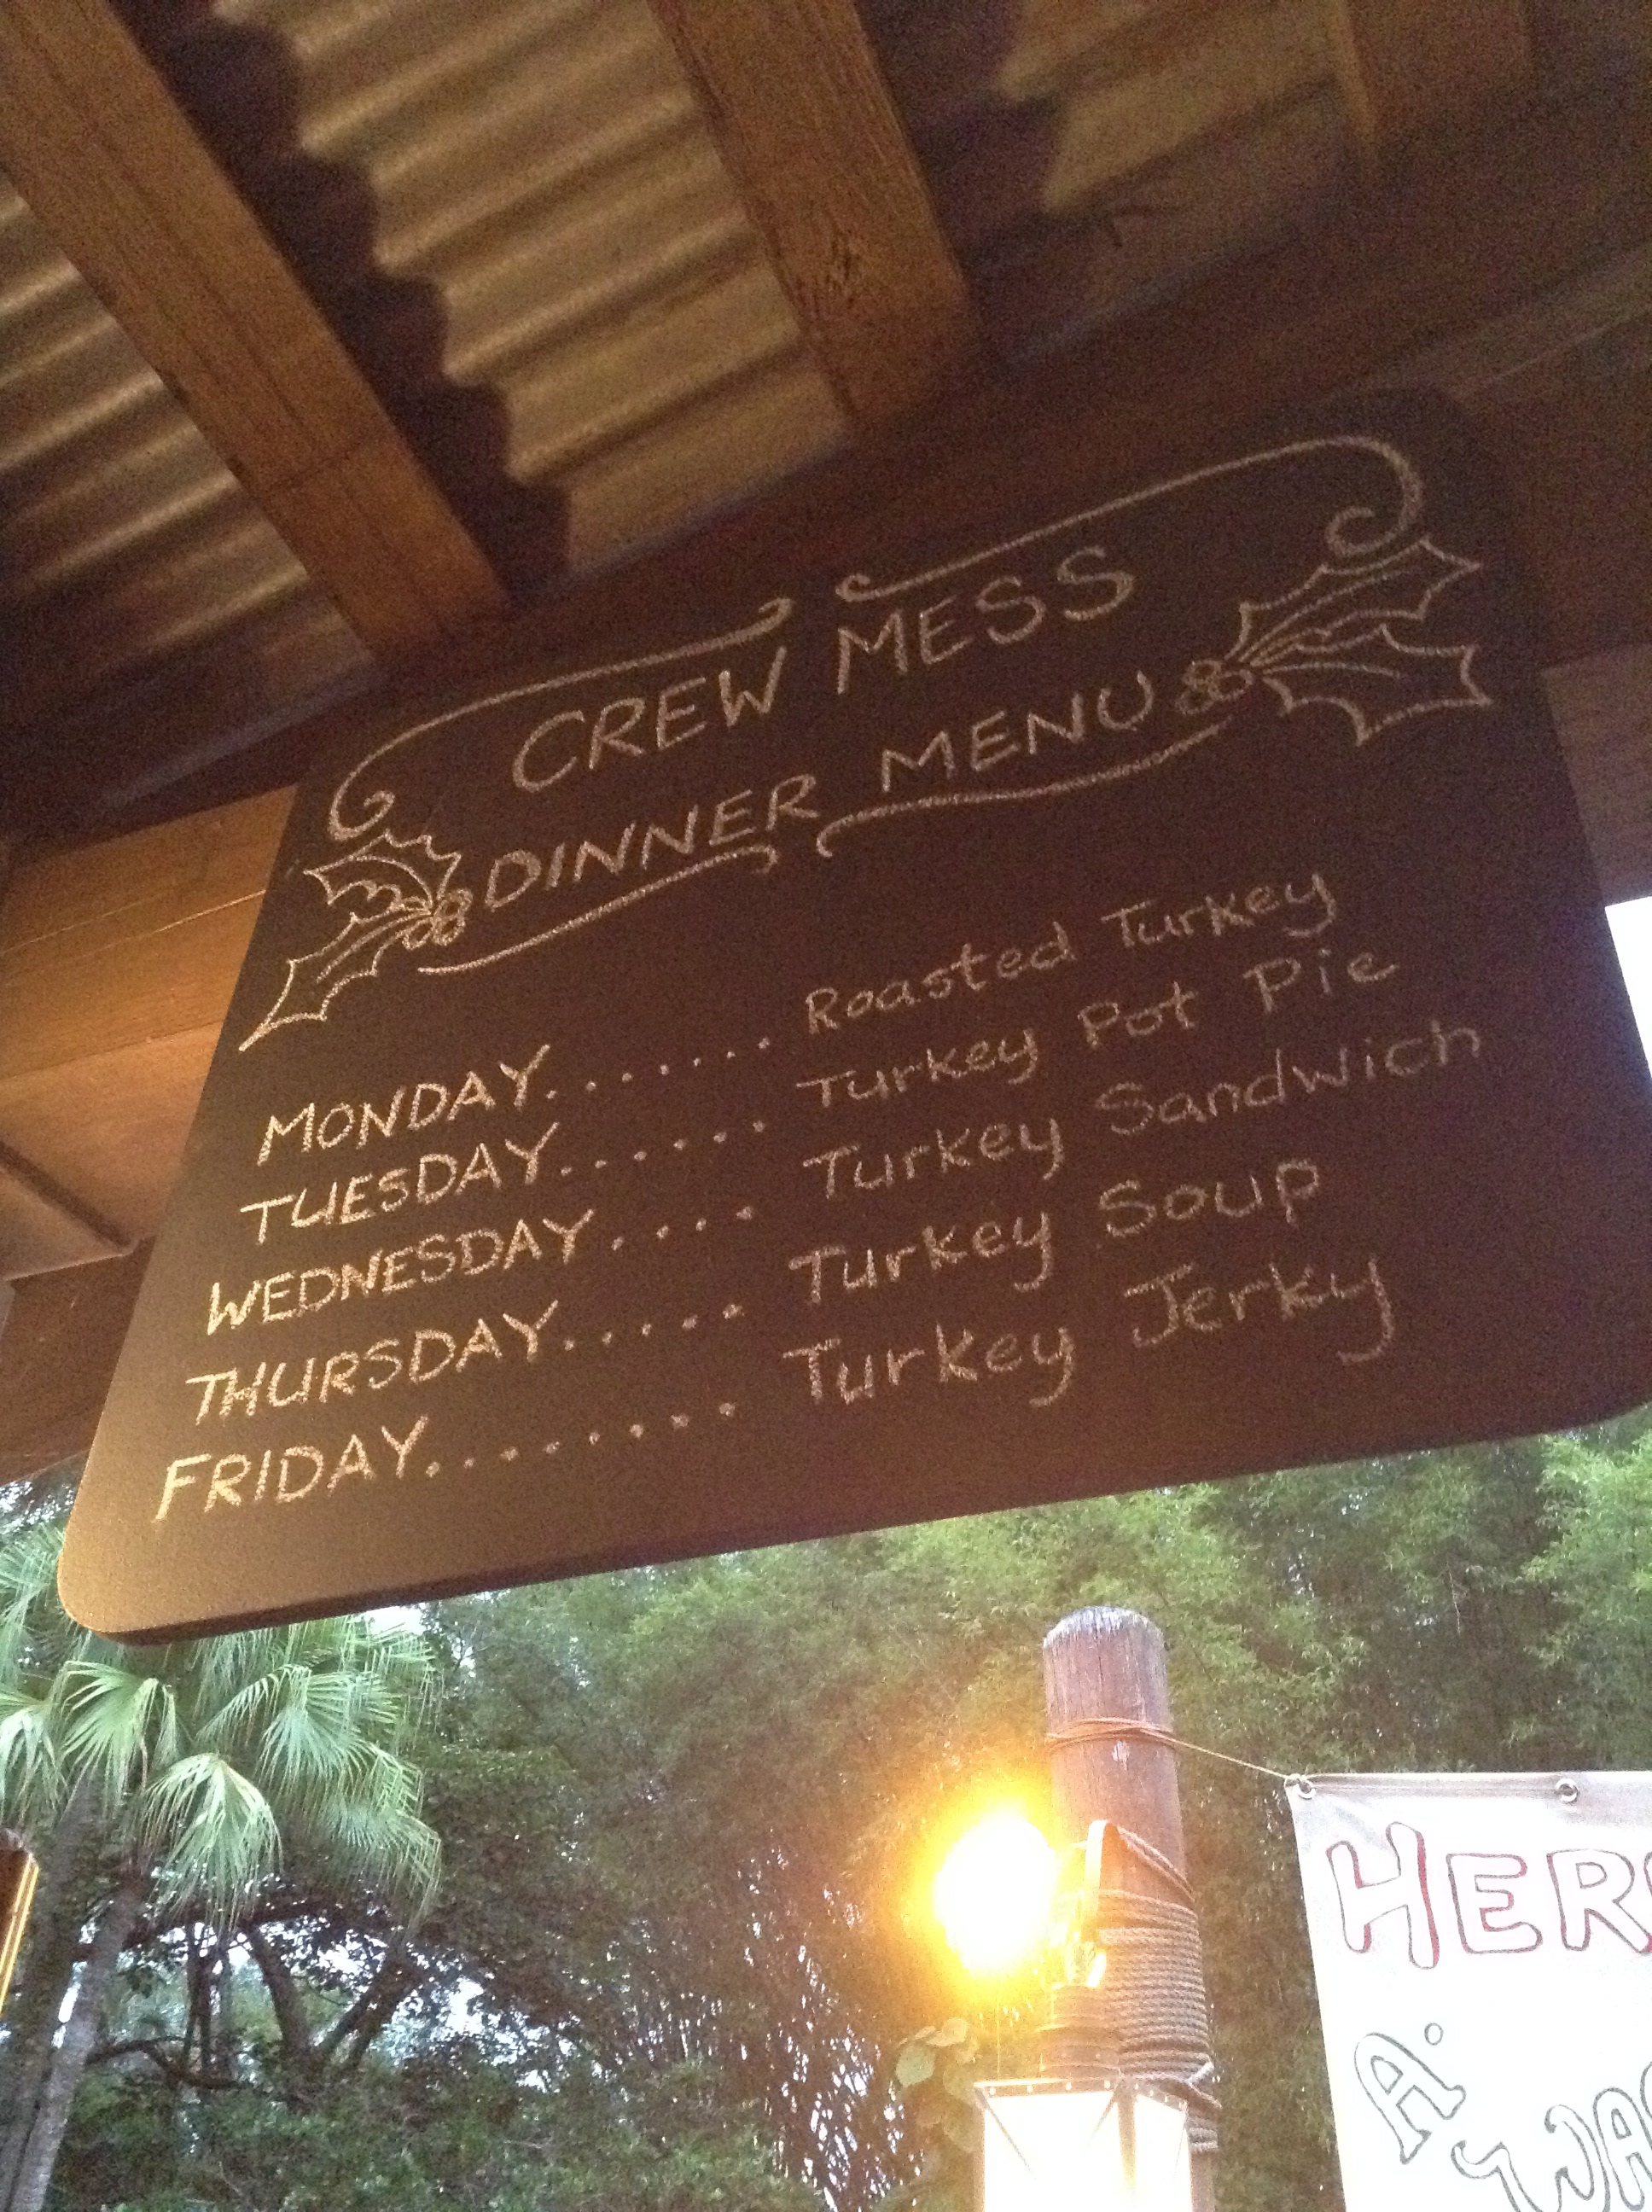 CREW MESS
DINNER MENU
MONDAY........ Roasted Turkey
TUESDAY....... Turkey Pot Pie
WEDNESDAY..... Turkey Sandwich
THURSDAY...... Turkey Soup
FRIDAY......... Turkey Jerky
A.